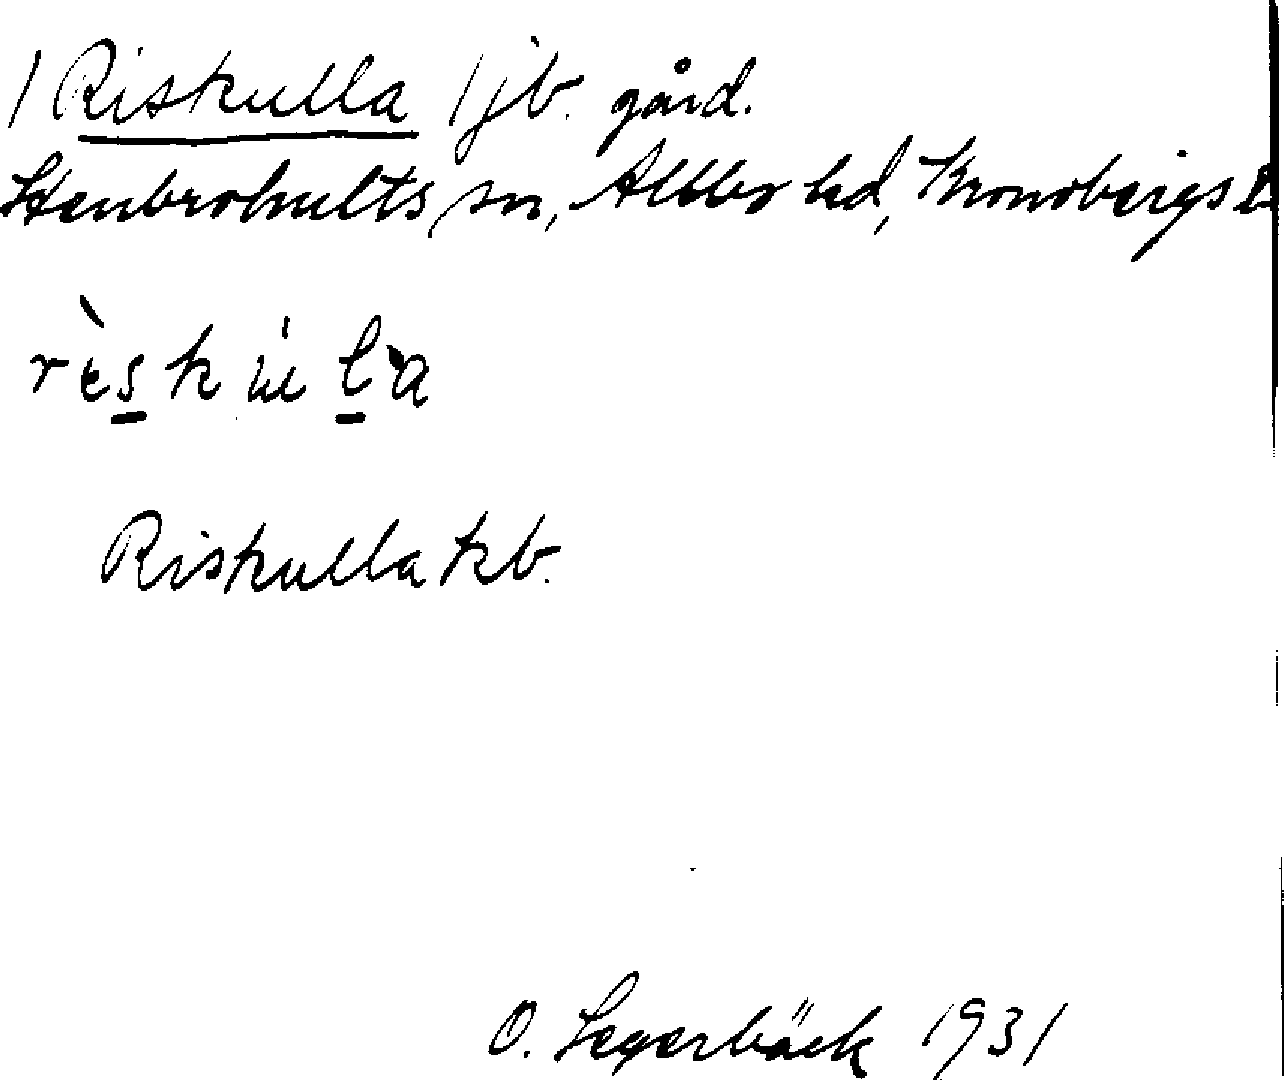 / Riskulla / jb. gård.
Stenbrohults sn, Allbo hd, Kronobergs L
rèskula
Riskulla kb.
O. Segerbäck 1931